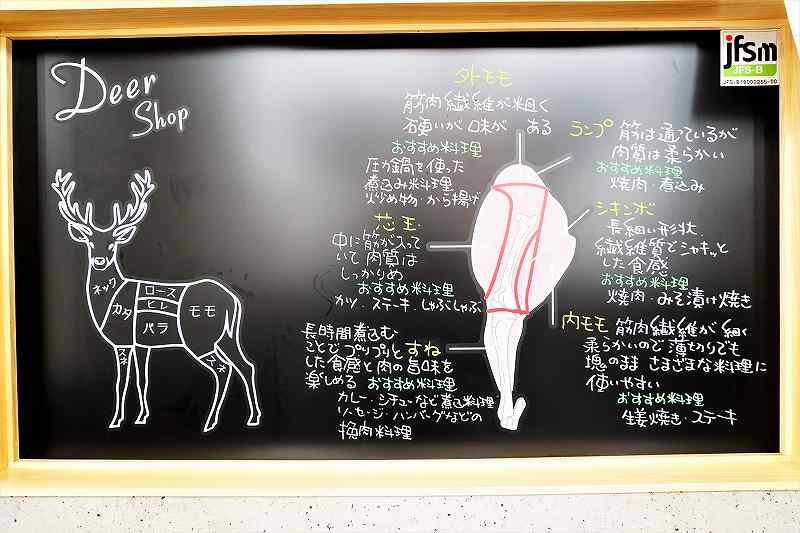 Deer
Shop
ネック
カタ
ロース
ヒレ
バラ
モモ
スネ
スネ
外モモ
筋肉繊維が粗く
硬いが味がある
おすすめ料理
圧力鍋を使った
煮込み料理
炒め物・から揚げ
芯玉
中に筋が入って
いて肉質は
しっかりめ
おすすめ料理
カツ・ステーキ・しゃぶしゃぶ
すね
長時間煮込む
ことでプリプリと
した食感と肉の旨味を
楽しめる おすすめ料理
カレー・シチューなど煮込料理
ソーセージ・ハンバーグなどの
挽肉料理
ランプ
筋は通っているが
肉質は柔らかい
おすすめ料理
焼肉・煮込み
シキンボ
長細い形状.
繊維質でシャキッと
した食感
おすすめ料理
焼肉・みそ漬け焼き
内モモ
筋肉繊維が細く
柔らかいので薄切りでも
塊のまま さまざまな料理に
使いやすい
おすすめ料理
生姜焼き・ステーキ
jfsm
JFS-B